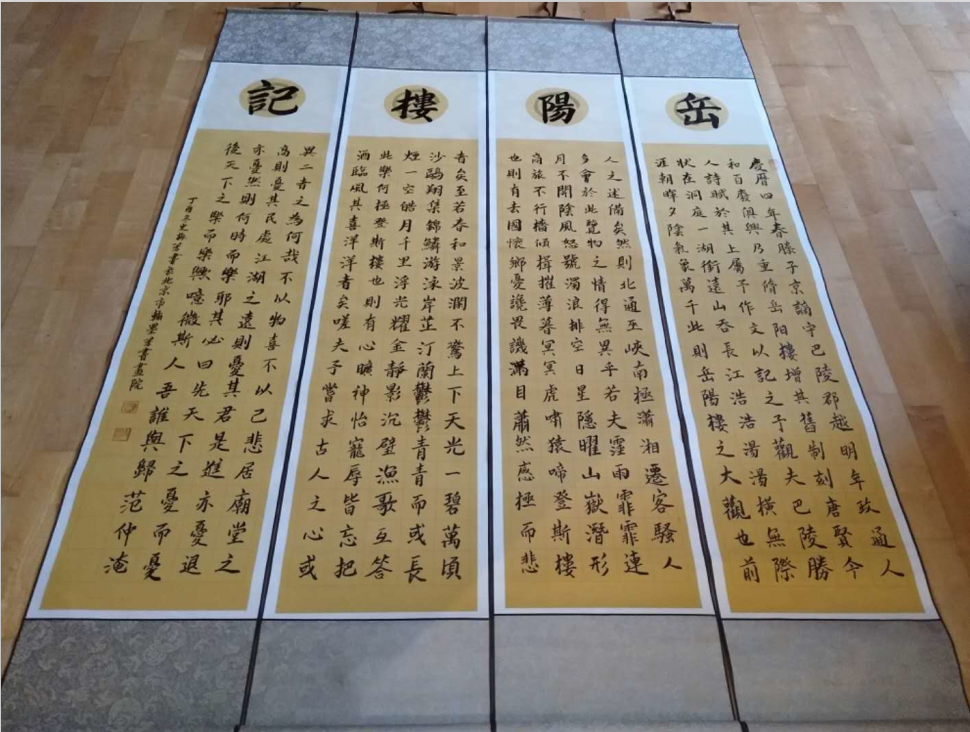 岳
慶曆四年春滕子京謫守巴陵郡越明年政通人
和百廢俱興乃重脩岳陽樓增其舊制刻唐賢今
人詩賦於其上屬予作文以記之予觀夫巴陵勝
狀在洞庭一湖銜遠山吞長江浩浩湯湯橫無際
涯朝暉夕陰氣象萬千此則岳陽樓之大觀也前
陽
人之述備矣然則北通巫峽南極瀟湘遷客騷人
多會於此覽物之情得無異乎若夫霪雨霏霏連
月不開陰風怒號濁浪排空日星隱曜山嶽潛形
商旅不行檣傾楫摧薄暮冥冥虎嘯猿啼登斯樓
也則有去國懷鄉憂讒畏譏滿目蕭然感極而悲
樓
者矣至若春和景波瀾不驚上下天光一碧萬頃
沙鷗翔集錦鱗游泳岸芷汀蘭鬱鬱青青而或長
煙一空皓月千里浮光耀金靜影沉璧漁歌互答
此樂何極登斯樓也則有心曠神怡寵辱皆忘把
酒臨風其喜洋洋者矣嗟夫予嘗求古人之心或
記
異二者之為何哉不以物喜不以己悲居廟堂之
高則憂其民處江湖之遠則憂其君是進亦憂退
亦憂然則何時而樂耶其必曰先天下之憂而憂
後天下之樂而樂歟噫微斯人吾誰與歸范仲淹
丁酉冬書於北京市翰墨書畫院